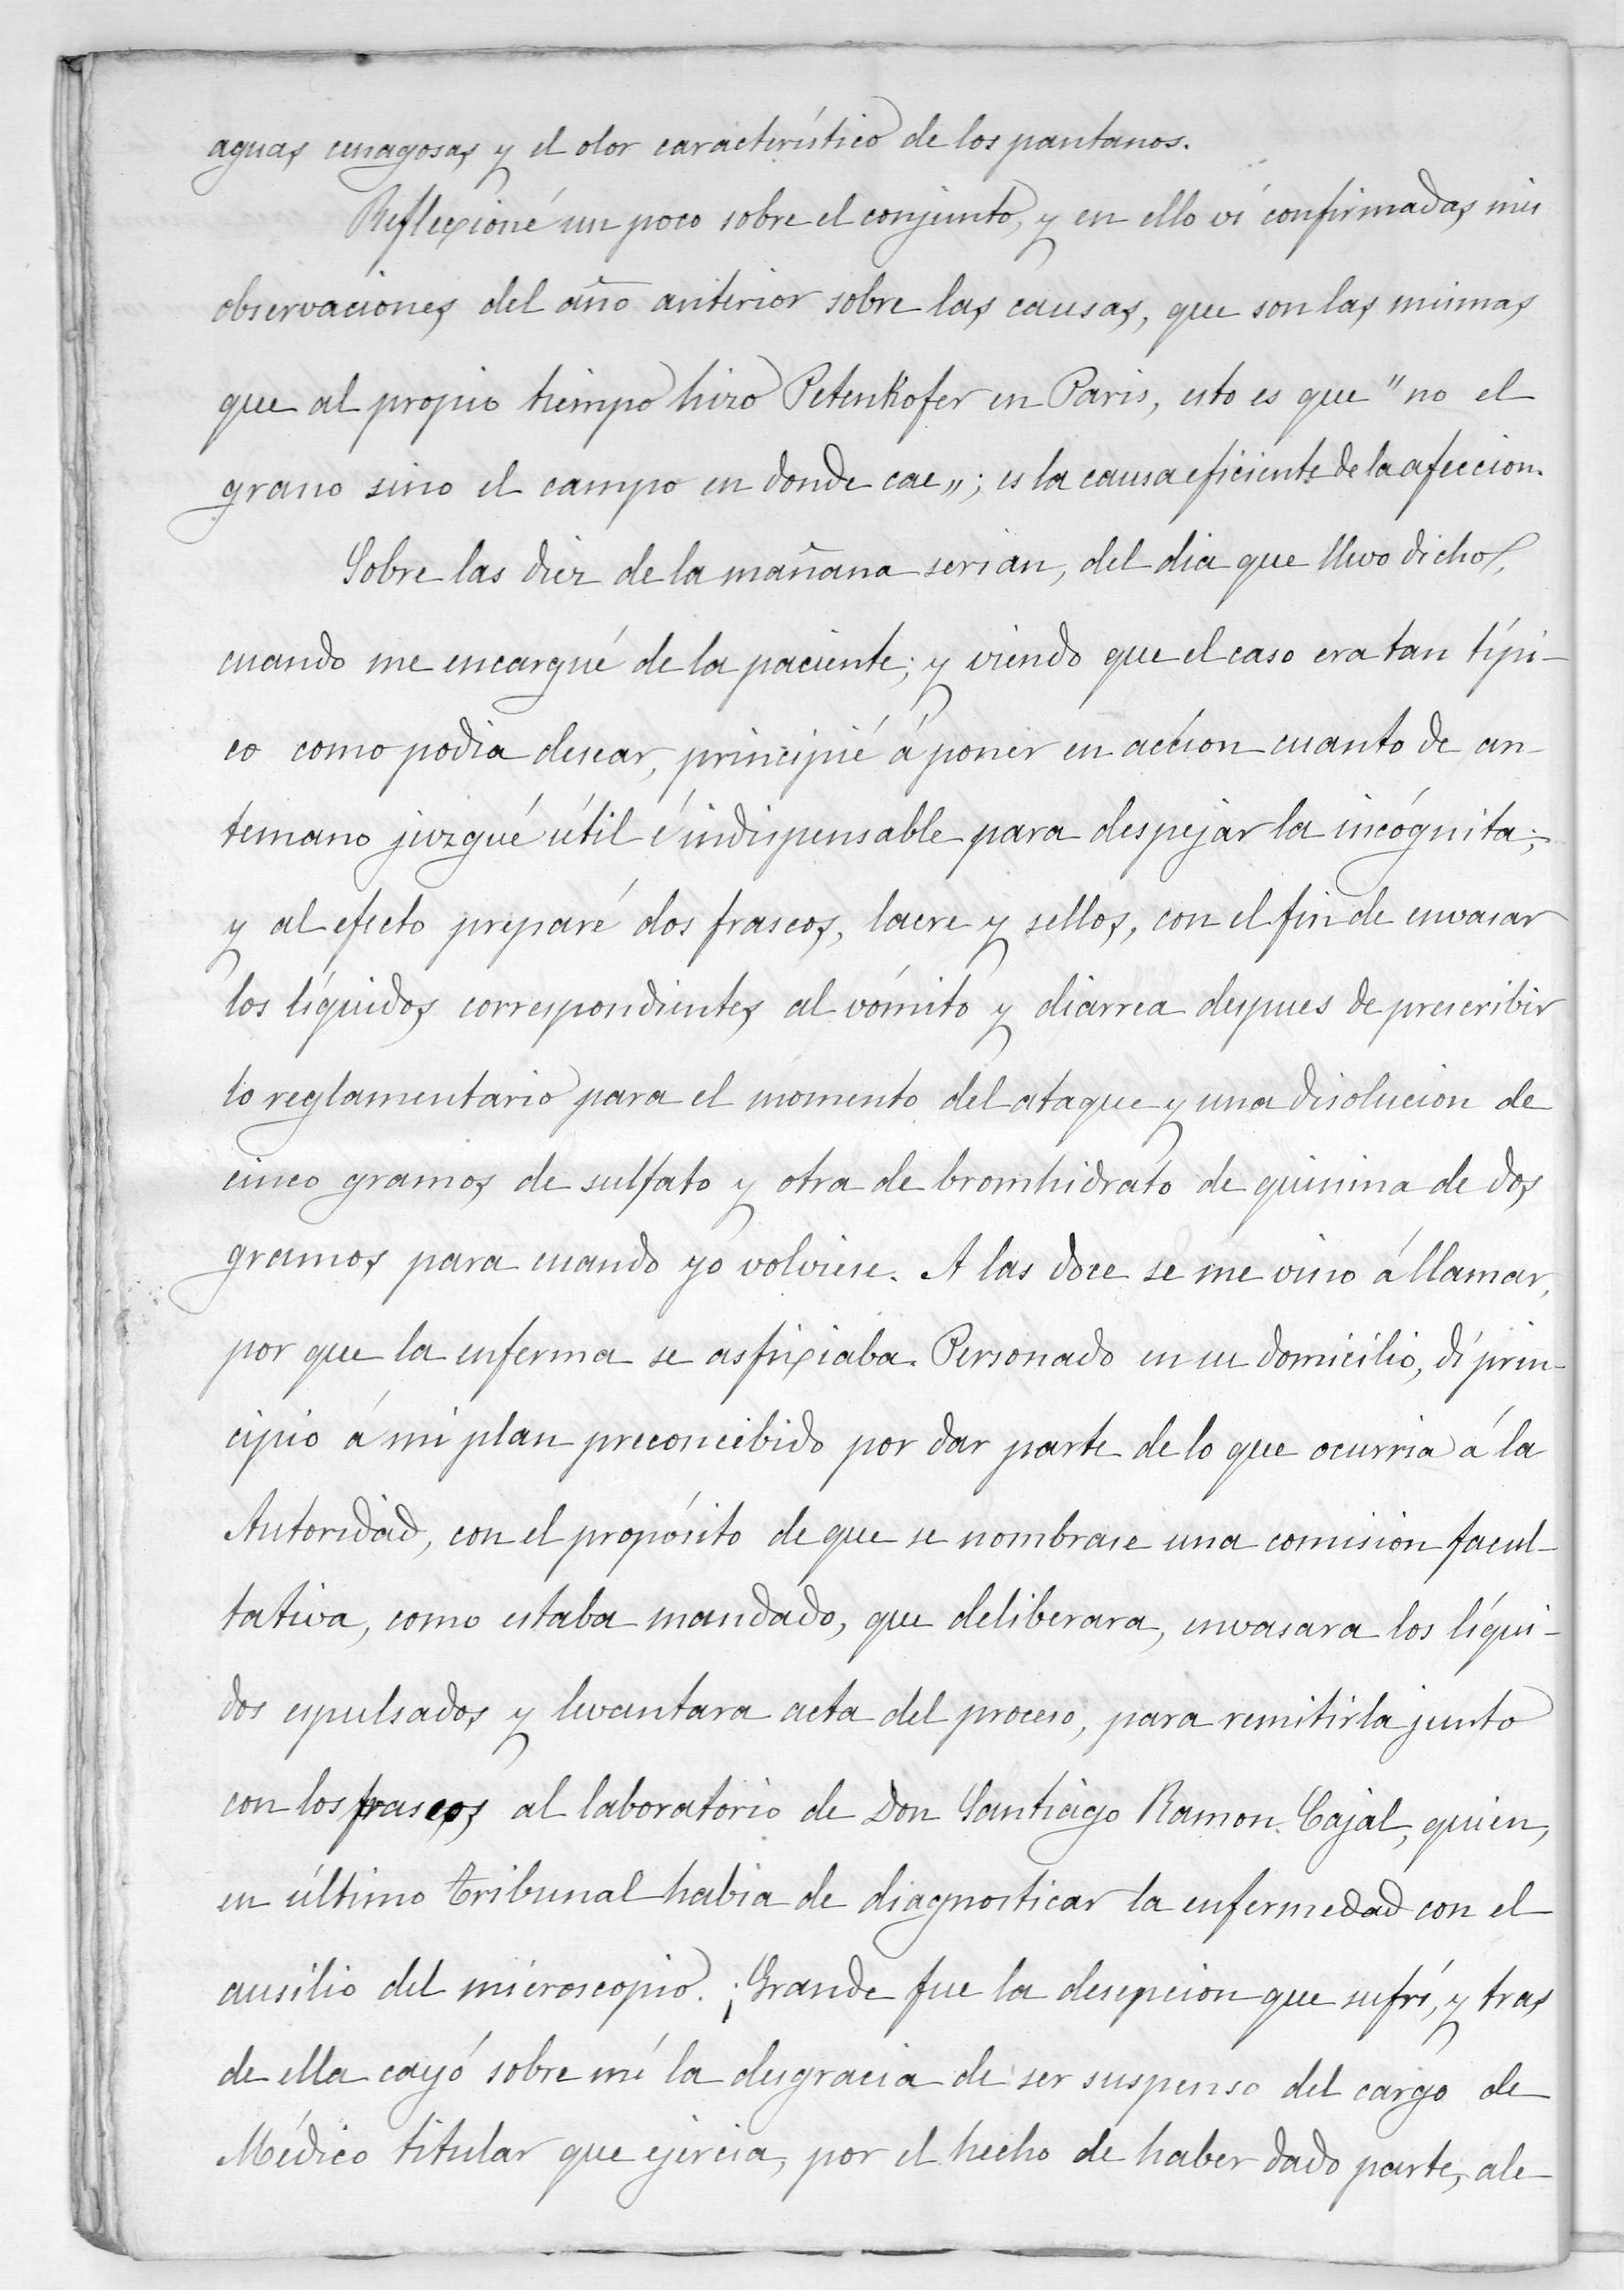 aguas cenagosas y el olor característico de los pantanos.
Reflexioné un poco sobre el conjunto, y en ello ví confirmadas mis
observaciones del año anterior sobre las causas, que son las mismas
que al propio tiempo hizo Petenkofer en Paris, esto es que "no el
grano sino el campo en donde cae"; es la causa eficiente de la afeccion.
Sobre las diez de la mañana serian, del dia que llevo dicho,
cuando me encargué de la paciente; y viendo que el caso era tan típi-
co como podia desear, principié á poner en accion cuanto de an-
temano juzgué útil é indispensable para despejar la incógnita;
y al efecto preparé dos frascos, lacre y sellos, con el fin de envasar
los líquidos correspondientes al vómito y diarrea despues de prescribir
lo reglamentario para el momento del ataque y una disolucion de
cinco gramos de sulfato y otra de bromhidrato de quinina de dos
gramos para cuando yo volviese. A las doce se me vino á llamar,
por que la enferma se asfixiaba. Personado en su domicilio, dí prin-
cipio á mi plan preconcibido por dar parte de lo que ocurria á la
Autoridad, con el propósito de que se nombrase una comision facul-
tativa, como estaba mandado, que deliberara, envasara los líqui-
dos espulsados y levantara acta del proceso, para remitirla junto
con los frascos al laboratorio de Don Santiago Ramon Cajal, quien,
en último tribunal habia de diagnosticar la enfermedad con el
ausilio del microscopio. ¡Grande fue la desepcion que sufrí, y tras
de ella cayó sobre mí la desgracia de ser suspenso del cargo de
Médico titular que ejercia, por el hecho de haber dado parte, ale-